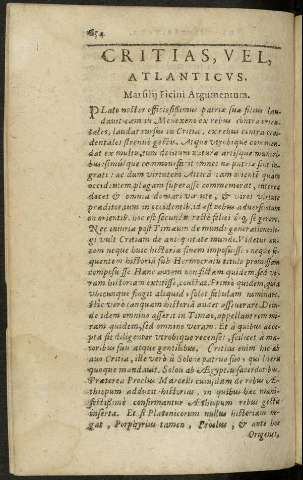 654
CRITIAS, VEL,
ATLANTICVS.
Marsilij Ficini Argumentum.
PLato noster officiosissimus patriæ suæ filius lau
dauit eam in Menexeno ex rebus contra orien
tales, laudat rursus in Critia, ex rebus contra occi
dentales strenuè gestis. Atque vtrobique commen
dat ex multa, tum
simulque commonefacit omnes ne patriæ sint in
grati: ac dum virtutem Attica
occidentem, plagam superasse commemorat, interea
docet omnia domari virtute, viros virtute
præditos, tum in occidentibus, id est rebus aduersis,
orientib. hoc est secundis rectè
Nec iniuria post Timæum de mundi generatione
vult Critiam de antiquitate mundi. Videtur au
tem neque hunc historiæ finem imposuisse: neque se
quentem historiã sub Hermocrati titulo promissam
composuisse. Hanc autem non fictam quidem, sed ve
ram historiam extitisse, constat. Primò quidem, quia
vbicunque fingit aliquid solet fabulam nominare.
Hîc verò tanquam historiã audet asseuerare. Dein
de idem omnino asserit in Timæo, appellans rem mi
ram quidem, sed omnino veram. Et à quibus acce
pta sit diligenter vtrobique recenset, scilicet à ma
ioribus suis atque gentilibus, Critias enim hic ab
auo Critia, ille verò à Solone patruo suo, qui litera
quoque mandauit. Solon ab Ægyptiis sacerdotibus.
Præterea Proclus Marcelli cuiusdam de rebus Æ-
thiopum adducit historias, in quibus hæc mani
festissimè confirmantur Æthiopum rebus gestis
inserta. Et si Platonicorum nullus historiam ne
gat, Porphyrius tamen, Proclus, & ante hos
Origenes,